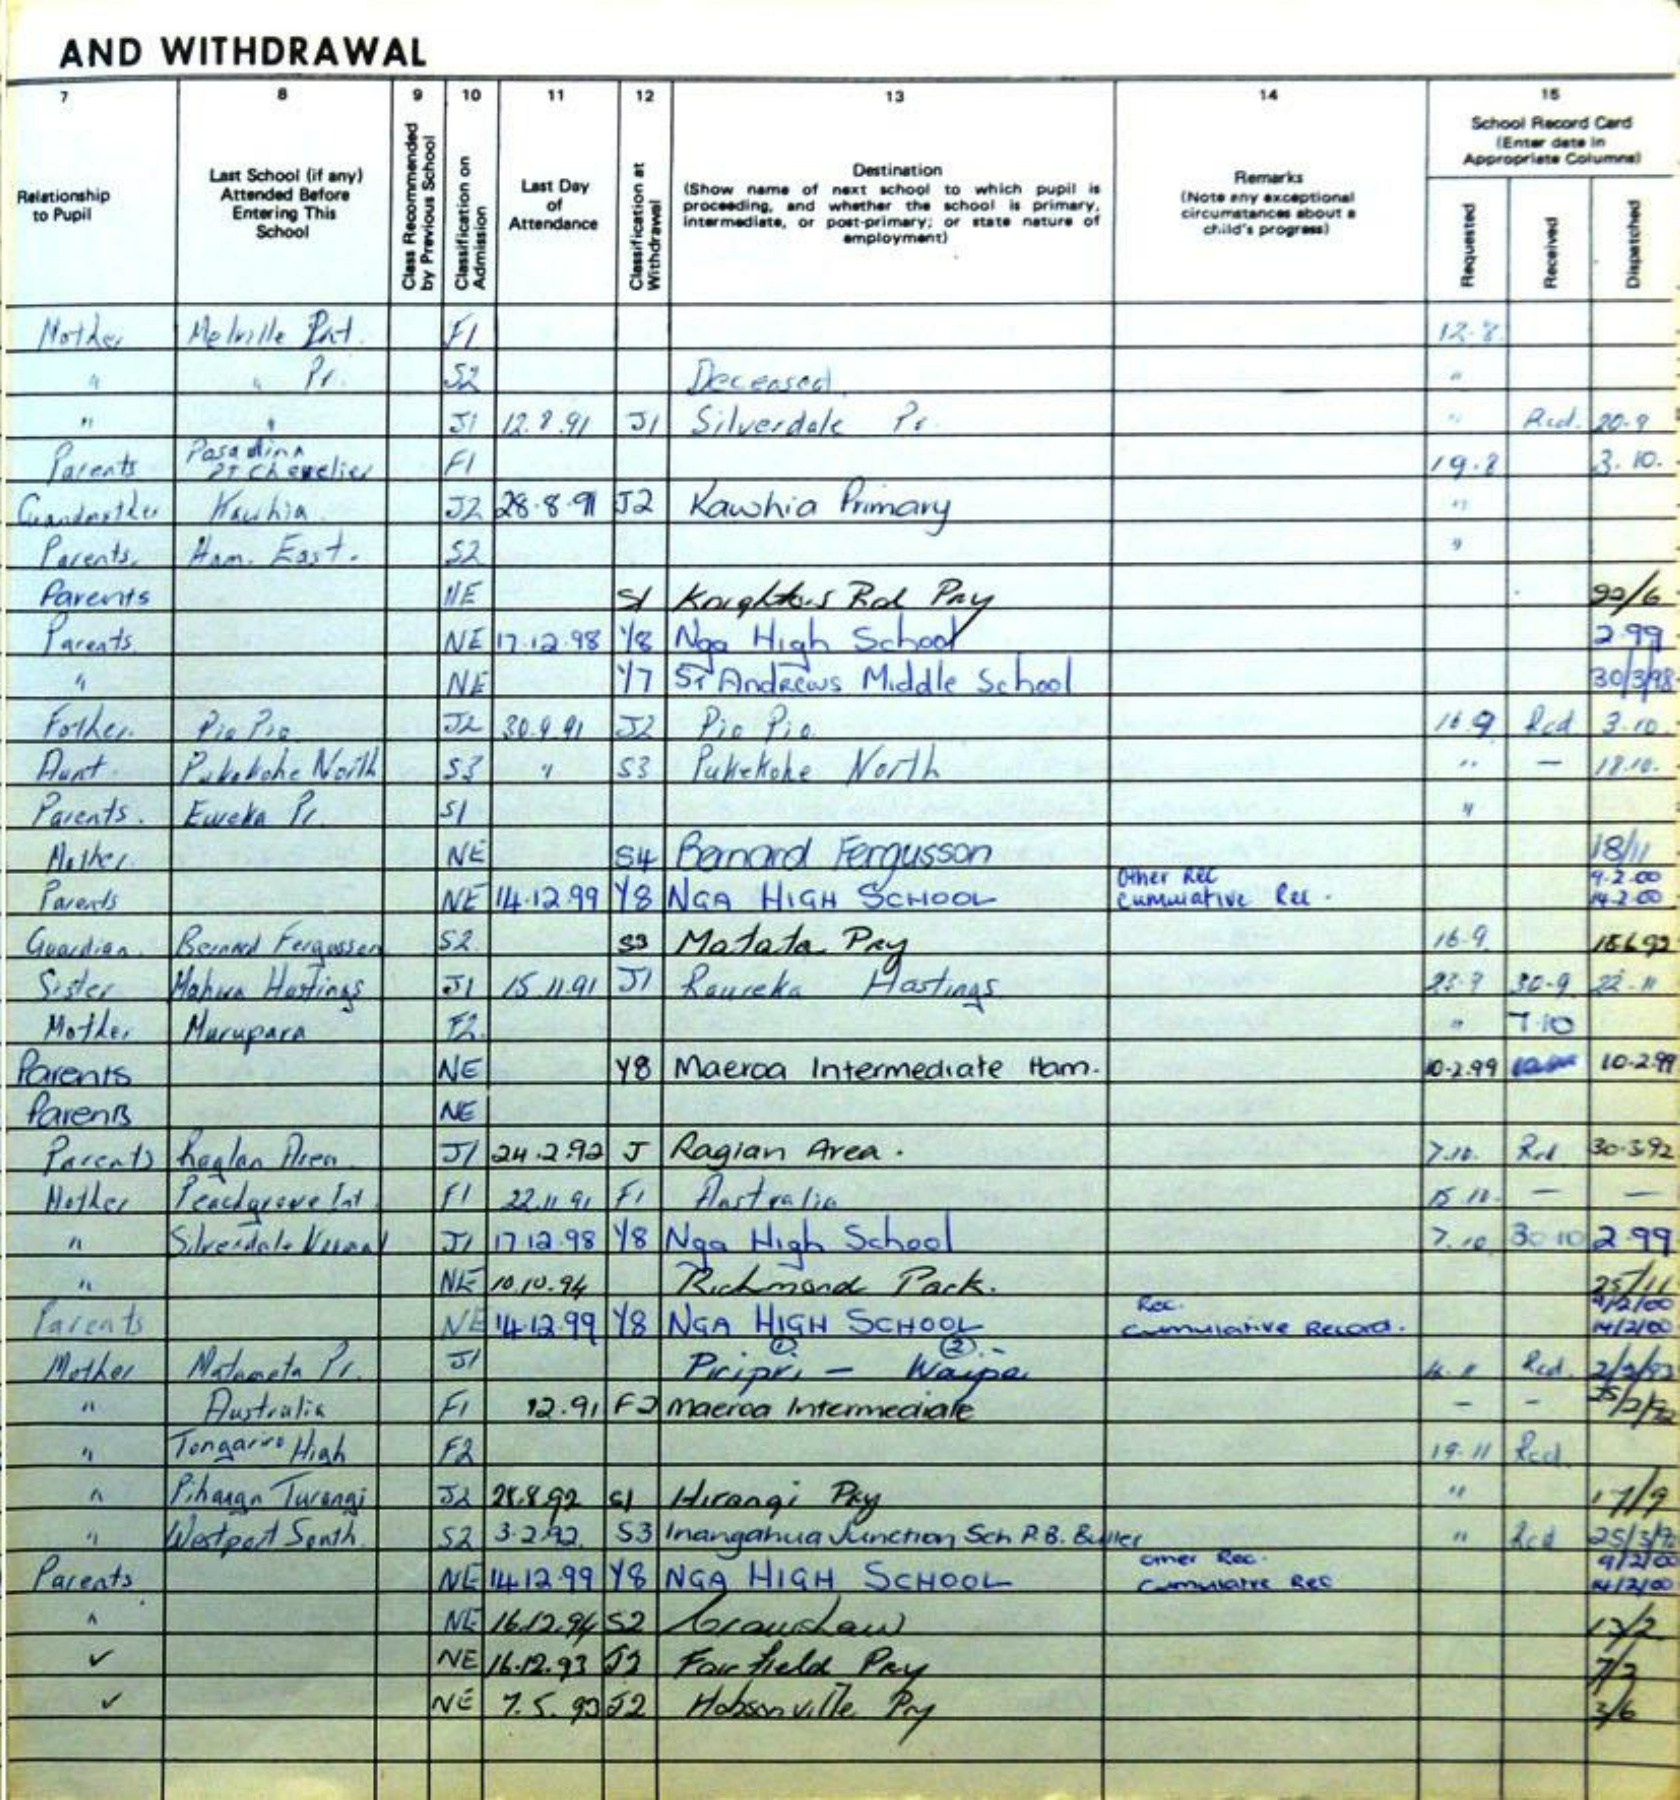 AND WITHDRAWAL
7 8 9 10 11 12 13 14 15
Relationship to Pupil
Last School (if any) Attended Before Entering This School
Class Recommended by Previous School
Classification on Admission
Last Day of Attendance
Classification at Withdrawal
Destination
(Show name of next school to which pupil is proceeding, and whether the school is primary, intermediate, or post-primary; or state nature of employment)
Remarks
(Note any exceptional circumstances about a child's progress)
School Record Card
(Enter date in Appropriate Columns)
Requested Received Dispatched
Mother Melville Int. F1 12.8
" " Pr. S2 Deceased "
" " J1 12.9.91 J1 Silverdale Pr. " Rcd. 20-9
Parents Pasadina Pt Chevelier F1 19.8 3.10.
Grandmother Kawhia J2 28.8.91 J2 Kawhia Primary "
Parents. Ham. East. S2 "
Parents NE S1 Knighton Rd Pry
Parents NE 17.12.98 Y8 Nga High School 2.99
" NE Y7 St Andrews Middle School 30/3/98
Father Pio Pio J2 30.9.91 J2 Pio Pio 16.9 Rcd 3.10
Aunt Pukekohe North S3 " S3 Pukekohe North " — 18.10.
Parents. Eureka Pr. S1 "
Mother NE S4 Bernard Fergusson 18/11
Parents NE 14.12.99 Y8 NGA HIGH SCHOOL Other Rec Cumulative Rec. 9.2.00 14.2.00
Guardian Bernard Fergusson S2 S3 Matata Pry 16.9 15.6.92
Sister Mahura Hastings J1 15.11.91 J1 Raureka Hastings 30-9 22-11
Mother Murupara F2 " 7.10
Parents NE Y8 Maeroa Intermediate Ham. 10.2.99 10.2.99
Parents NE
Parents Raglan Area J1 24.2.92 J Raglan Area. 7.10. Rcd 30.3.92
Mother Peachgrove Int F1 22.11.91 F1 Australia 15.10. — —
" Silverdale Normal J1 17.12.98 Y8 Nga High School 7.10 30.10 2.99
" NE 10.10.94 Richmond Park. 25/11
Parents NE 14.12.99 Y8 NGA HIGH SCHOOL Rec. Cumulative Record. 9/2/00 14/2/00
Mother Matamata Pr. J1 Piripiri ① — Waipa ② Rcd.
" Australia F1 12.91 F2 Maeroa Intermediate - -
" Tongariro High F2 19.11 Rcd.
" Pihanga Turangi J2 28.8.92 S1 Hirangi Pry " 17/9
" Westport South S2 3.2.92 S3 Inangahua Junction Sch P.B. Buller " Rcd
Parents NE 14.12.99 Y8 NGA HIGH SCHOOL Other Rec. Cumulative Rec 9/2/00 14/2/00
" NE 16.12.94 S2 Crawshaw 13/2
✓ NE 16.12.93 Fairfield Pry
✓ NE 7.5.93 J2 Hobsonville Pry 3/6